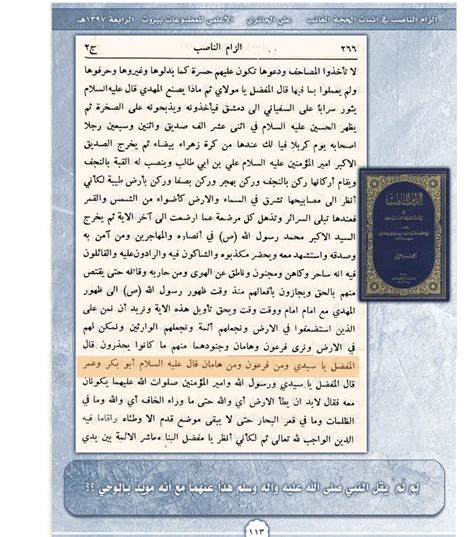 الزام الناصب في اثبات الحجة الغائب علي الحائري الأعلمي للمطبوعات بيروت الرابعة ١٣٩٧هـ
٢٦٦ الزام الناصب ج٢
لا تأخذوا المصاحف ودعوها تكون عليهم حسرة كما بدلوها وغيروها وحرفوها
ولم يعملوا بما فيها قال المفضل يا مولاي ثم ماذا يصنع المهدي قال عليه السلام
يثور سراباً على السفياني الى دمشق فيأخذونه ويذبحونه على الصخرة ثم
يظهر الحسين عليه السلام في اثنى عشر الف صديق واثنين وسبعين رجلا
اصحابه يوم كربلا فيا لك عندها من كرة زهراء بيضاء ثم يخرج الصديق
الاكبر امير المؤمنين عليه السلام علي بن ابي طالب وينصب له القبة بالنجف
ويقام أركانها ركن بالنجف وركن بهجر وركن بصفا وركن بأرض طيبة لكأني
أنظر الى مصابيحها تشرق في السماء والارض كأضواء من الشمس والقمر
فعندها تبلى السرائر وتذهل كل مرضعة عما ارضعت الى آخر الاية ثم يخرج
السيد الاكبر محمد رسول الله (ص) في أنصاره والمهاجرين ومن آمن به
وصدقه واستشهد معه ويحضر مكذبوه والشاكون فيه والرادون عليه والقائلون
فيه انه ساحر وكاهن ومجنون وناطق عن الهوى ومن حاربه وقاتله حتى يقتص
منهم بالحق ويجازون بأفعالهم منذ وقت ظهر رسول الله (ص) الى ظهور
المهدي مع امام امام ووقت وقت ويحق تأويل هذه الاية ونريد أن نمن على
الذين استضعفوا في الارض ونجعلهم أئمة ونجعلهم الوارثين ونمكن لهم
في الارض ونرى فرعون وهامان وجنودهما منهم ما كانوا يحذرون قال
المفضل يا سيدي ومن فرعون ومن هامان قال عليه السلام أبو بكر وعمر
قال المفضل يا سيدي ورسول الله وامير المؤمنين صلوات الله عليهما يكونان
معه فقال لابد ان يطأ الأرض أي والله حتى ما وراء الخاف أي والله وما في
الظلمات وما في قعر البحار حتى لا يبقى موضع قدم الا وطئاه واقاما فيه
الدين الواجب لله تعالى ثم لكأني أنظر يا مفضل الينا معاشر الائمة بين يدي
لم لم يقل النبي صلى الله عليه واله وسلم هذا عنهما مع انه مؤيد بالوحي ؟؟
١١٣